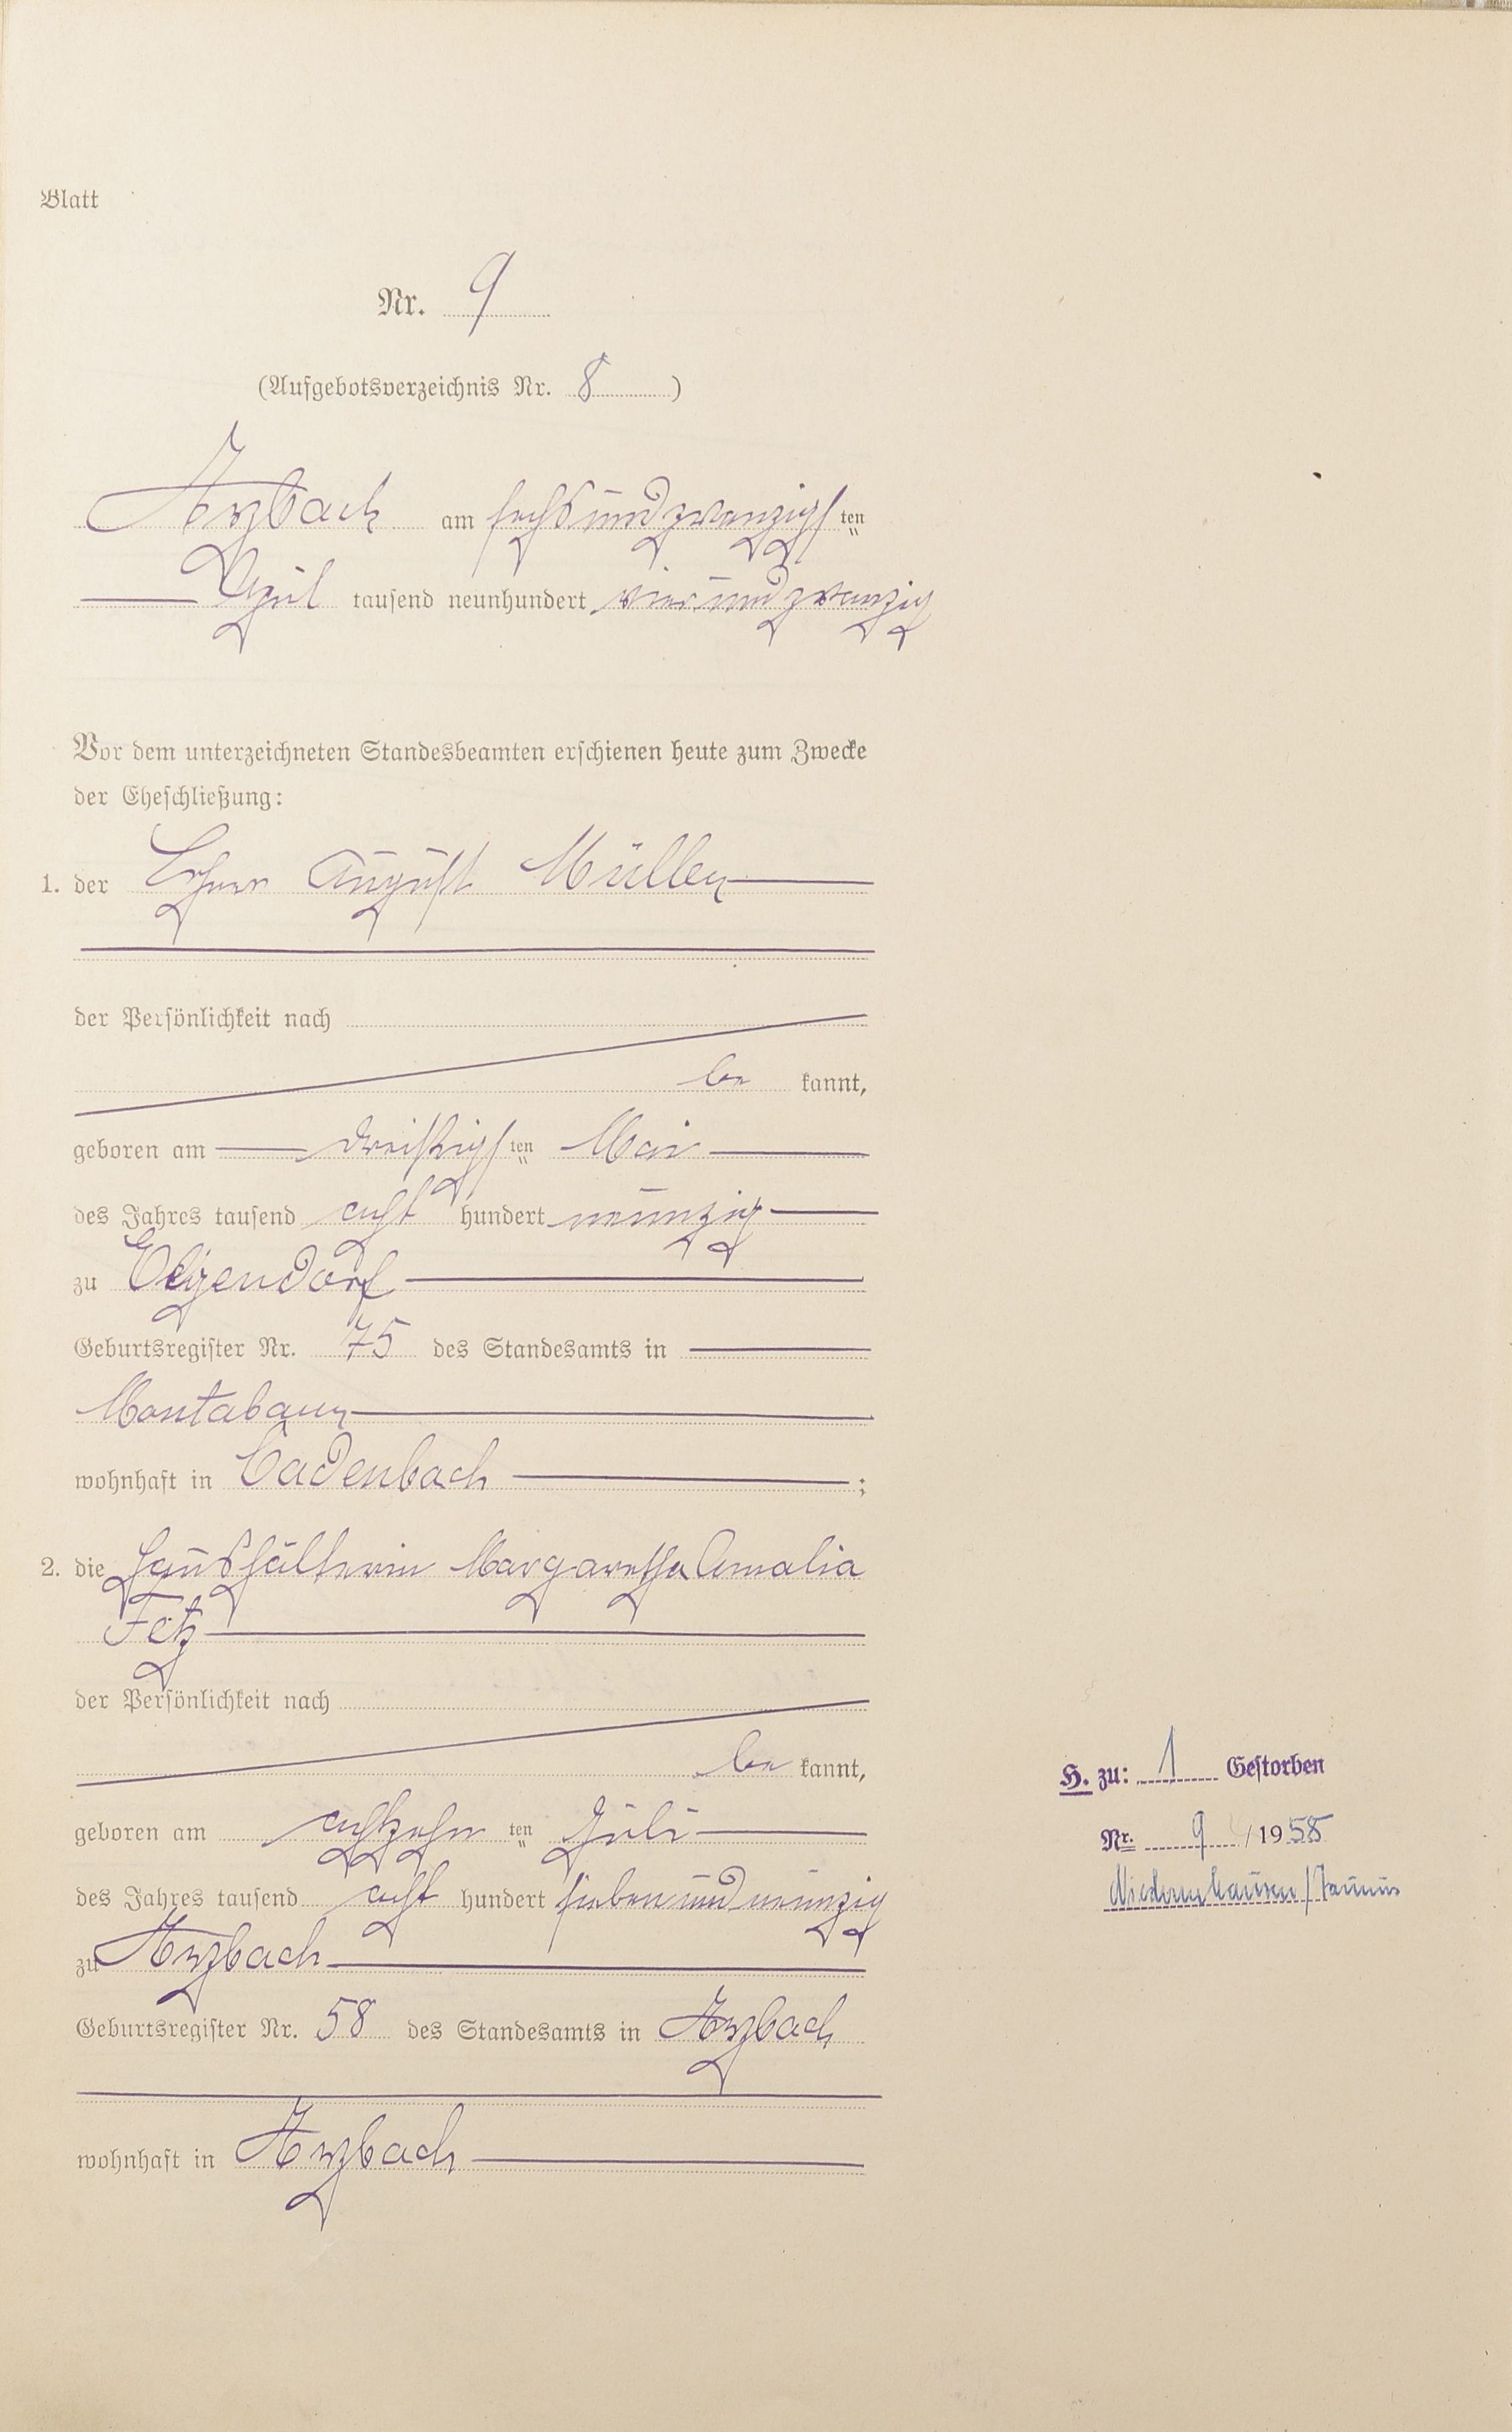 Blatt
Nr. 9
(Aufgebotsverzeichnis Nr. 8)
Arzbach am sechsundzwanzigsten
April tausend neunhundert vierundzwanzig
Vor dem unterzeichneten Standesbeamten erschienen heute zum Zwecke
der Eheschließung:
1. der Lehrer August Müller
der Persönlichkeit nach
be kannt,
geboren am dreißigsten Mai
des Jahres tausend acht hundert neunzig
zu Elgendorf
Geburtsregister Nr. 75 des Standesamts in
Montabaur
wohnhaft in Cadenbach ;
2. die Haushälterin Margaretha Amalia
Fetz
der Persönlichkeit nach
be kannt,
geboren am achtzehnten Juli
des Jahres tausend acht hundert siebenundneunzig
zu Arzbach
Geburtsregister Nr. 58 des Standesamts in Arzbach
wohnhaft in Arzbach
H. zu: 1 Gestorben
Nr. 9 / 1958
Niedernhausen/Taunus